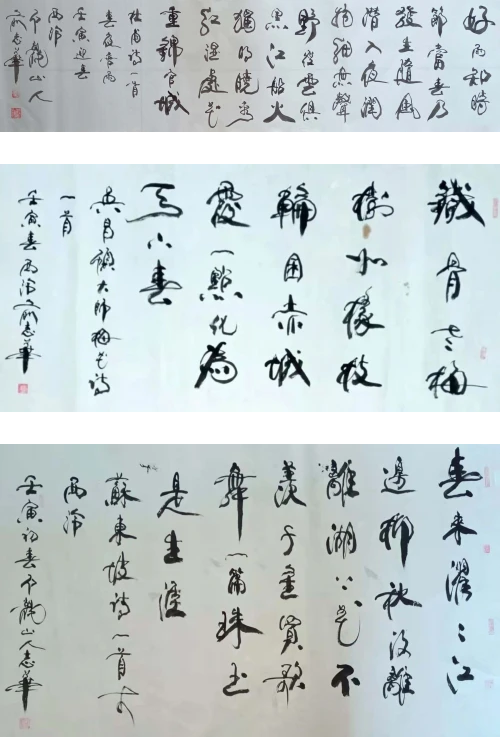 好雨知時
節當春乃
發生隨風
潛入夜潤
物細無聲
野徑雲俱
黑江船火
獨明曉看
紅濕處花
重錦官城
杜甫詩一首
春夜喜雨
壬寅迎春
西泠
龍山人
俞志華
鐵骨老梅
樹如枝
輪囷赤城
霞一點化為
天下春
吳昌碩大師梅花詩
一首
壬寅春西泠俞志華
春來濯〻江
邊柳秋後離
離湖上花不
羨千金買歌
舞一篇珠玉
是生涯
蘇東坡詩一首於
西泠
壬寅初春龍山人志華